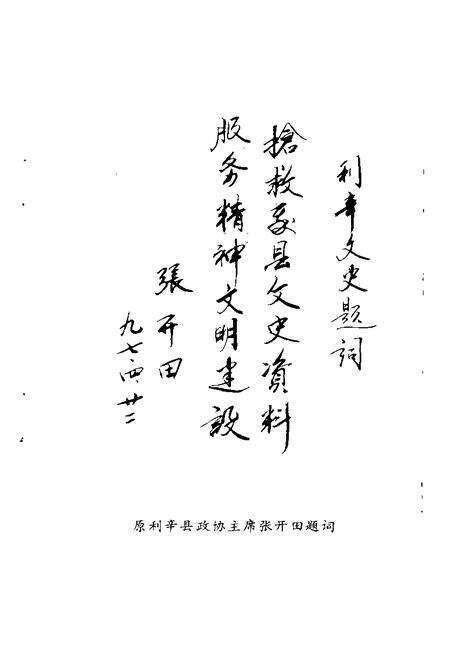 利辛文史题詞
搶救我县文史资料
服务精神文明建設
張开田
九七、四、廿二
原利辛县政协主席张开田题词